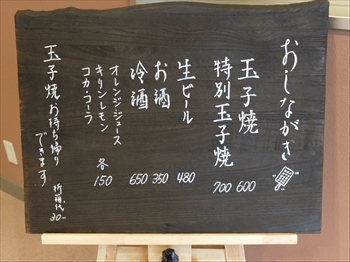 おしながき
玉子焼 600
特別玉子焼 700
生ビール 480
お酒 350
冷酒 650
オレンジ・ジュース
キリンレモン 各150
コカ・コーラ
玉子焼お持ち帰り
できます! 折箱代30-